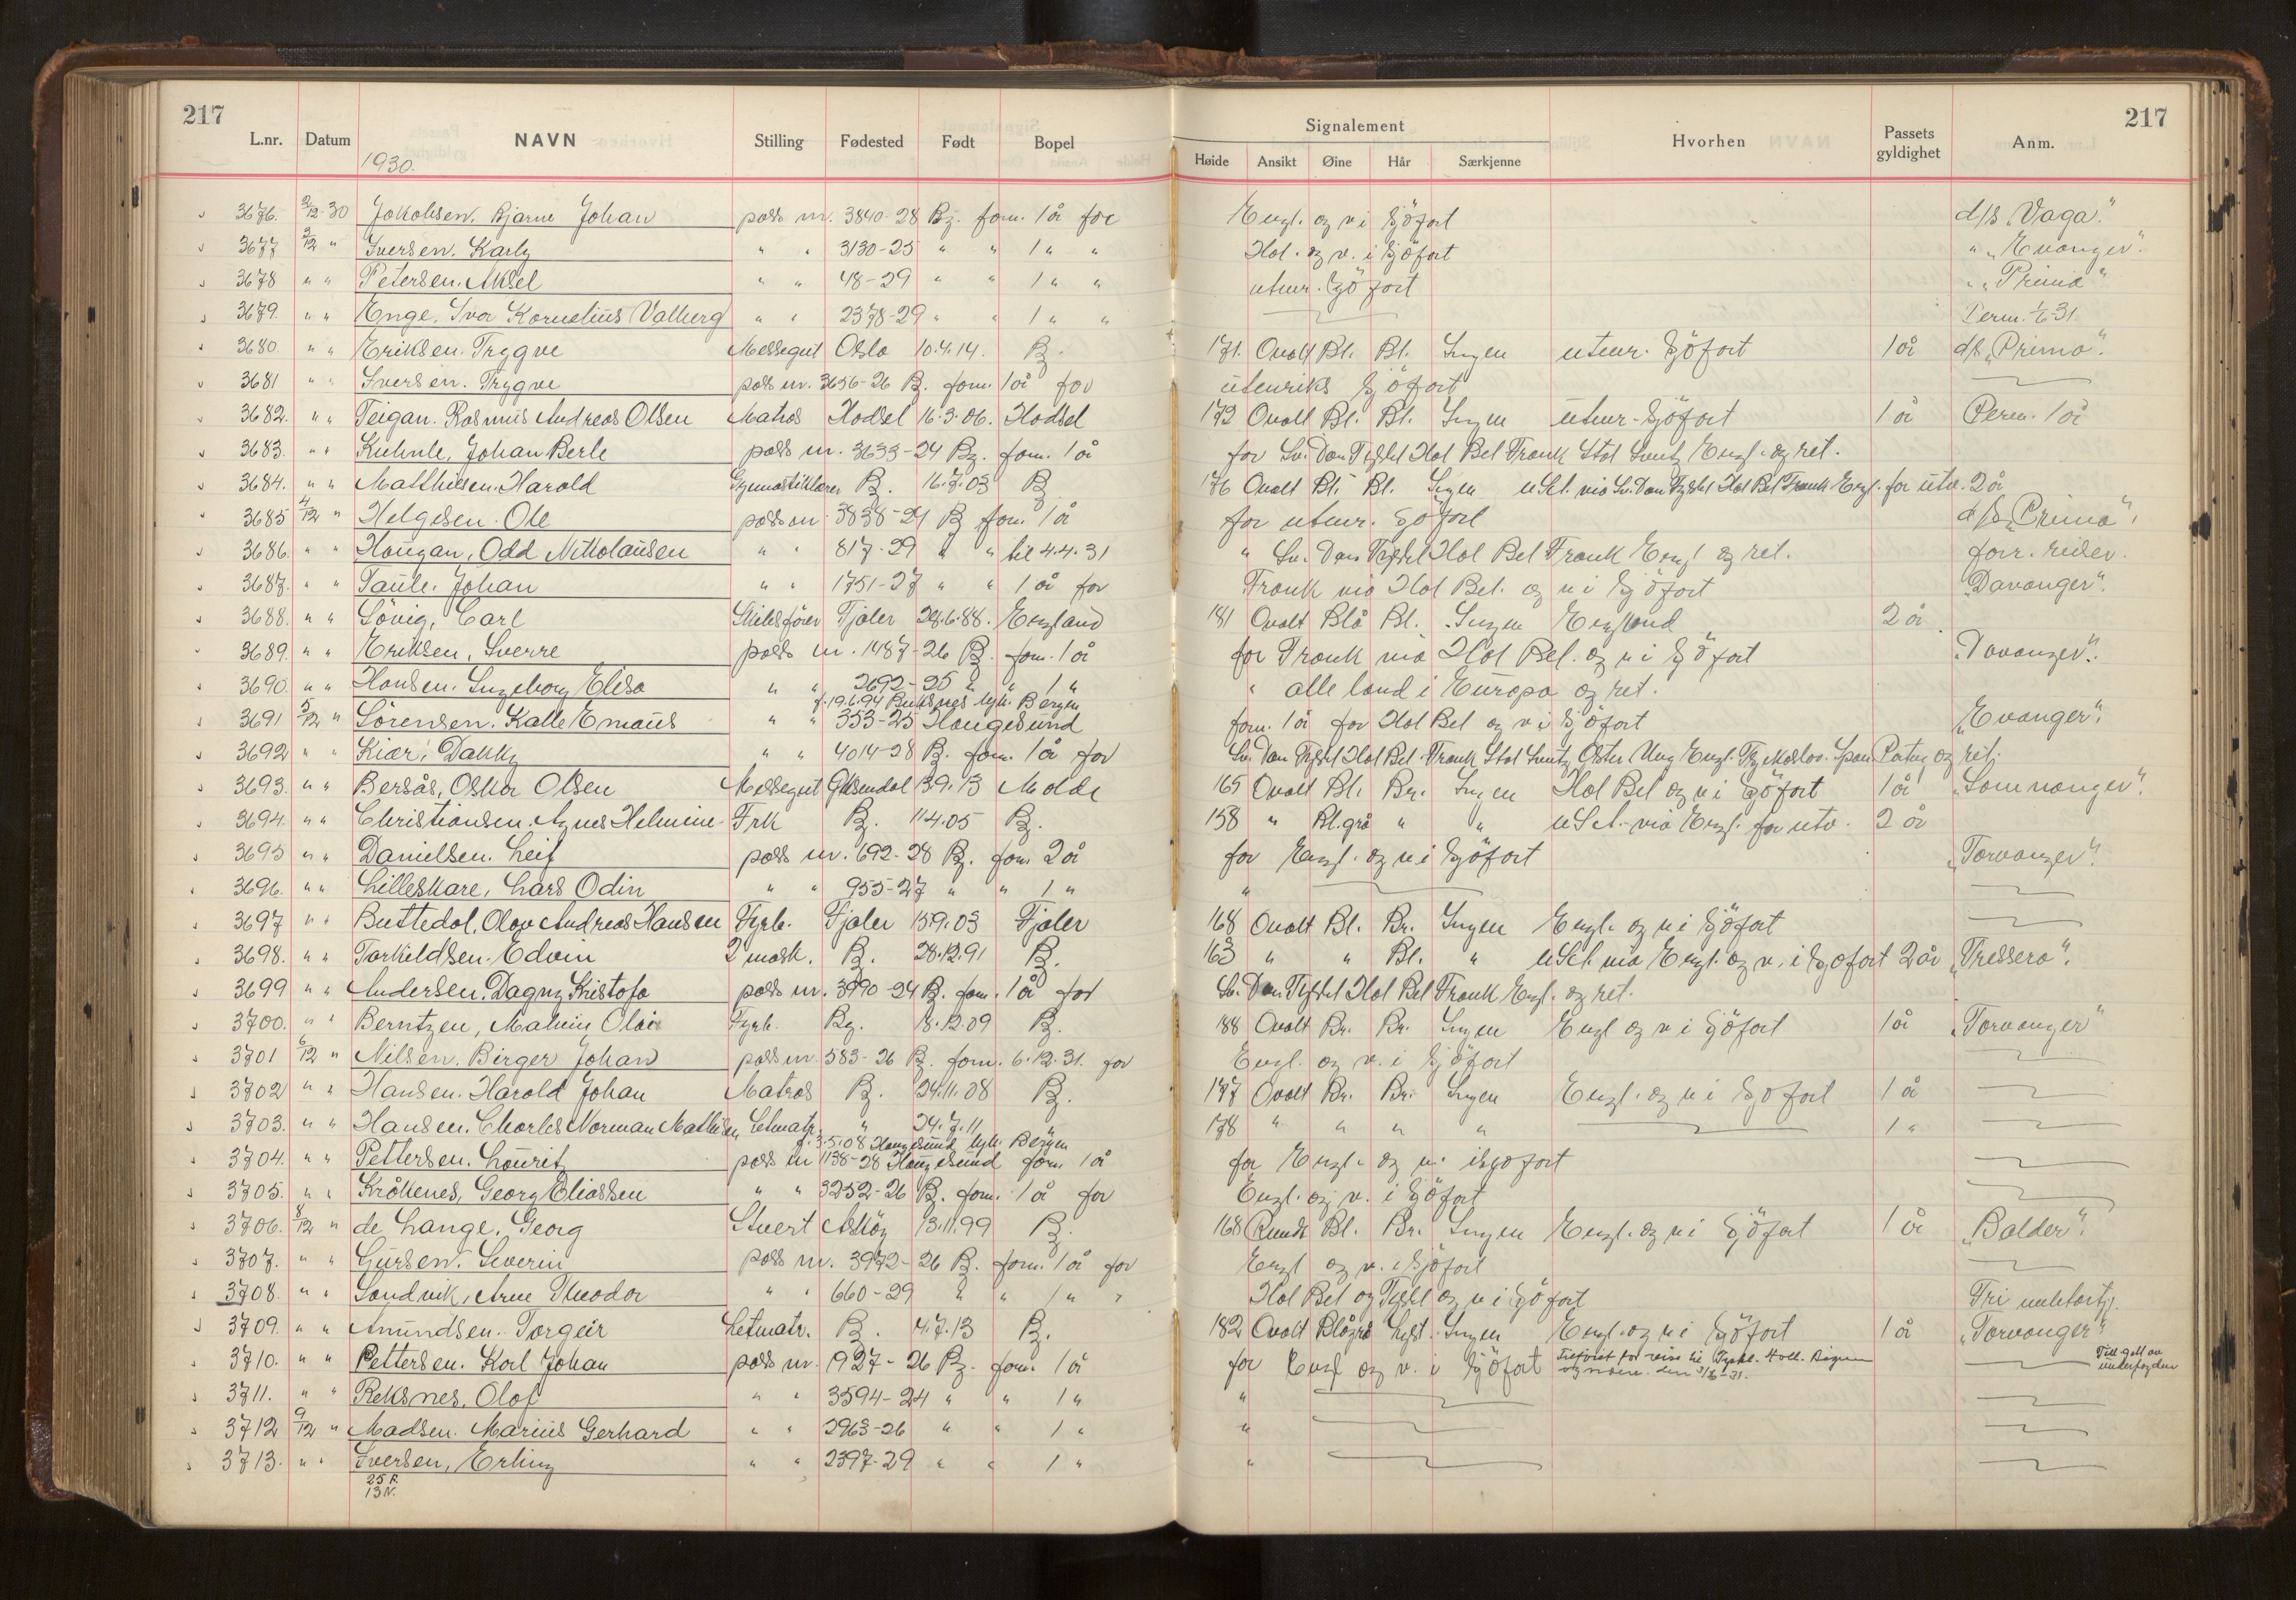 217 217
Signalement
L.nr. Datum NAVN Stilling Fødested Født Bopel Høide Ansikt Øine Hår Særkjenne Hvorhen Passets gyldighet Anm.
1930.
3676. 2/12-30 Jakobsen. Bjarne Johan pass nr. 3840-28 Bg. forn. 1 år for Engl. og v i Sjöfart d/s "Vaga".
3677 3/12 " Iversen. Karly " " 3130-25 " " 1 " " Hol. og v. i Sjöfart " "Evanger".
3678 " " Petersen. Aksel " " 48-29 " " 1 " " utenr. Sjöfart " "Prima"
3679. " " Enge. Ivar Kornelius Valberg " " 2378-29 " " 1 " " Perm. 1/6-31.
3680. " " Eriksen. Trygve Messegut Oslo 10.4.14. B. 171. Ovalt Bl. Bl. Ingen utenr. Sjöfart 1 år d/s "Prima".
3681 " " Iversen. Trygve pass nr. 3656-26 B. forn. 1 år for utenriks Sjöfart
3682. " " Teigan. Rasmus Andreas Olsen Matros Hodsel 16.3.06. Hodsel 172 Ovalt Bl. Bl. Ingen utenr. Sjöfart 1 år Perm. 1 år
3683. " " Kuhnle, Johan Berle pass nr. 3633-24 Bg. forn. 1 år for Sv. Dan Tyskl Hol Bel Frank Ital Sveitz Engl. og ret.
3684. " " Matthiesen. Harald Gymnastiklærer B. 16.7.03 B 176 Ovalt Bl. Bl. Ingen U.S.A. via Sv. Dan Tyskl Hol Bel Frank Engl. for utv. 2 år
3685 4/12 " Helgesen. Ole pass nr. 3838-24 B forn. 1 år for utenr. Sjöfart d/s "Prima".
3686. " " Haugan, Odd Nikolausen " " 817-29 " " til 4.4.31 " Sv. Dan Tyskl Hol Bel Frank Engl og ret. forr. reiser.
3687. " " Taule. Johan " " 1751-27 " " 1 år for Frank via Hol Bel. og v i Sjöfart "Davanger".
3688. " " Sövig, Carl Skibsförer Fjaler 28.6.88. England 181 Ovalt Blå Bl. Ingen England 2 år
3689. " " Eriksen, Sverre pass nr. 1487-26 B. forn. 1 år for Frank via Hol Bel. og v i Sjöfart "Davanger".
3690. " " Hansen. Ingeborg Elisa " " 2692-25 " " 1 " " alle land i Europa og ret.
f. 19.6.94 Buksnes lyh. Bergen
3691 5/12 " Sörensen. Kalle Emaus " " 353-25 Haugesund forn. 1 år for Hol Bel og v i Sjöfart "Evanger".
3692 " " Kiær, Dakky " " 4014-28 B. forn. 1 år for Sv. Dan Tyskl Hol Bel. Frank Ital Sveitz Öster Ung Engl. Tsjekoslov. Span Portug og ret.
3693. " " Bersås, Oskar Olsen Messegut Öksendal 13.9.13 Molde 165 Ovalt Bl. Br. Ingen Hol Bel og v i Sjöfart 1 år "Somnanger".
3694. " " Christiansen. Agnes Helmine Frk B. 11.4.05 B. 158 " Bl.grå " " U.S.A. via Engl. for utv. 2 år
3695 " " Danielsen. Leif pass nr. 692-28 B. forn 2 år for Engl. og v i Sjöfart "Torvanger".
3696. " " Lilleskare, Lars Odin " " 955-27 " " 1 " "
3697 " " Buttedal, Olav Andreas Hansen Fyrb. Fjaler 15.9.03 Fjaler 168 Ovalt Bl. Br. Ingen Engl. og v i Sjöfart
3698. " " Torkildsen. Edvin 2 mask. B. 28.12.91 B. 163 " " Bl. " U.S.A. via Engl. og v. i Sjöfart 2 år "Tressera".
3699 " " Andersen. Dagny Kristofa pass nr. 3990-24 B. forn. 1 år for Sv. Dan Tyskl Hol Bel Frank Engl. og ret.
3700. " " Berntzen, Malvin Olai Fyrb. Bg. 8.12.09 B. 188 Ovalt Br. Br. Ingen Engl og v i Sjöfart 1 år "Torvanger"
3701 6/12 " Nilsen. Birger Johan pass nr. 583-26 B. forn. 6.12.31. for Engl. og v. i Sjöfart
3702 " " Hansen. Harald Johan Matros B. 24.11.08 B. 177 Ovalt Br. Br. Ingen Engl. og v i Sjöfart 1 år
3703. " " Hansen. Charles Norman Mathias Letmatr. " 24.7.11 178 " " " " 1 "
f. 3.5.08 Haugesund lyh. Bergen
3704. " " Pettersen. Lauritz pass nr 1138-28 Haugesund forn 1 år for Engl. og v. i Sjöfart
3705. " " Kråkenes, Georg Eliassen " " 3252-26 B. forn. 1 år for Engl. og v. i Sjöfart
3706. 8/12 " de Lange. Georg Stuert Asköy 13.11.99 B. 168 Rundt Bl. Br. Ingen Engl. og v i Sjöfart 1 år "Balder".
3707. " " Gursen. Severin pass nr. 3972-26 B. forn. 1 år for Engl og v. i Sjöfart
3708. " " Sandvik, Arne Theodor " " 660-29 " " 1 " " Hol Bel og Tyskl og v i Sjöfart Fri
3709. " " Amundsen. Torgeir Letmatr. B. 4.7.13 B. 182 Ovalt Blågrå Lyst. Ingen Engl. og v i Sjöfart 1 år "Torvanger"
3710. " " Pettersen. Karl Johan pass nr. 1927-26 Bg. forn. 1 år for Engl og v. i Sjöfart
3711. " " Reksnes, Olaf " " 3594-24 " " 1 " "
3712 9/12 " Madsen. Marius Gerhard " " 2963-26 " " 1 " "
3713. " " Iversen, Erling " " 2397-29 " " 1 " "
25 F.
13 N.